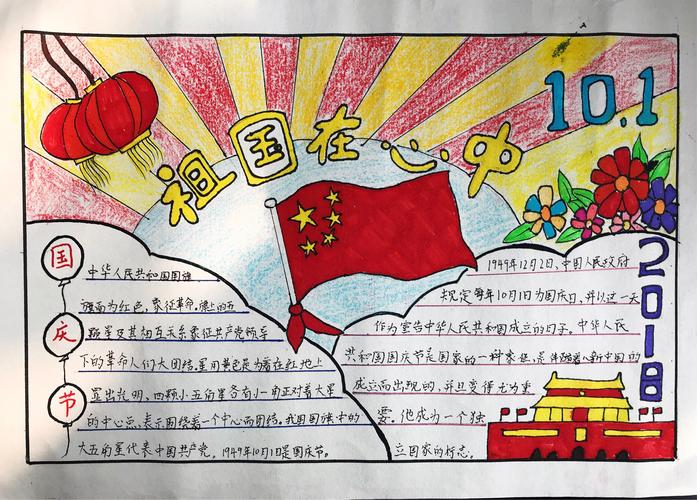 10.1
祖国在心中
国庆节
中华人民共和国国旗
旗面为红色,象征革命,旗上的五
颗星及其相互关系象征共产党领导
下的革命人们大团结,星用黄色是为着在红地上
显出光明、四颗小五角星各有小角正对着大星
的中心点,表示围绕着一个中心而团结。我国国旗中的
大五角星代表中国共产党。1949年10月1是国庆节。
1949年12月2日、中国人民政府
规定每年10月1日为国庆日、并以这一天
作为宣告中华人民共和国成立的日子。中华人民
共和国国庆节是国家的一种象征,是伴随着新中国的
成立而出现的,并且变得尤为重
要。他成为一个独
立国家的标志。
2018